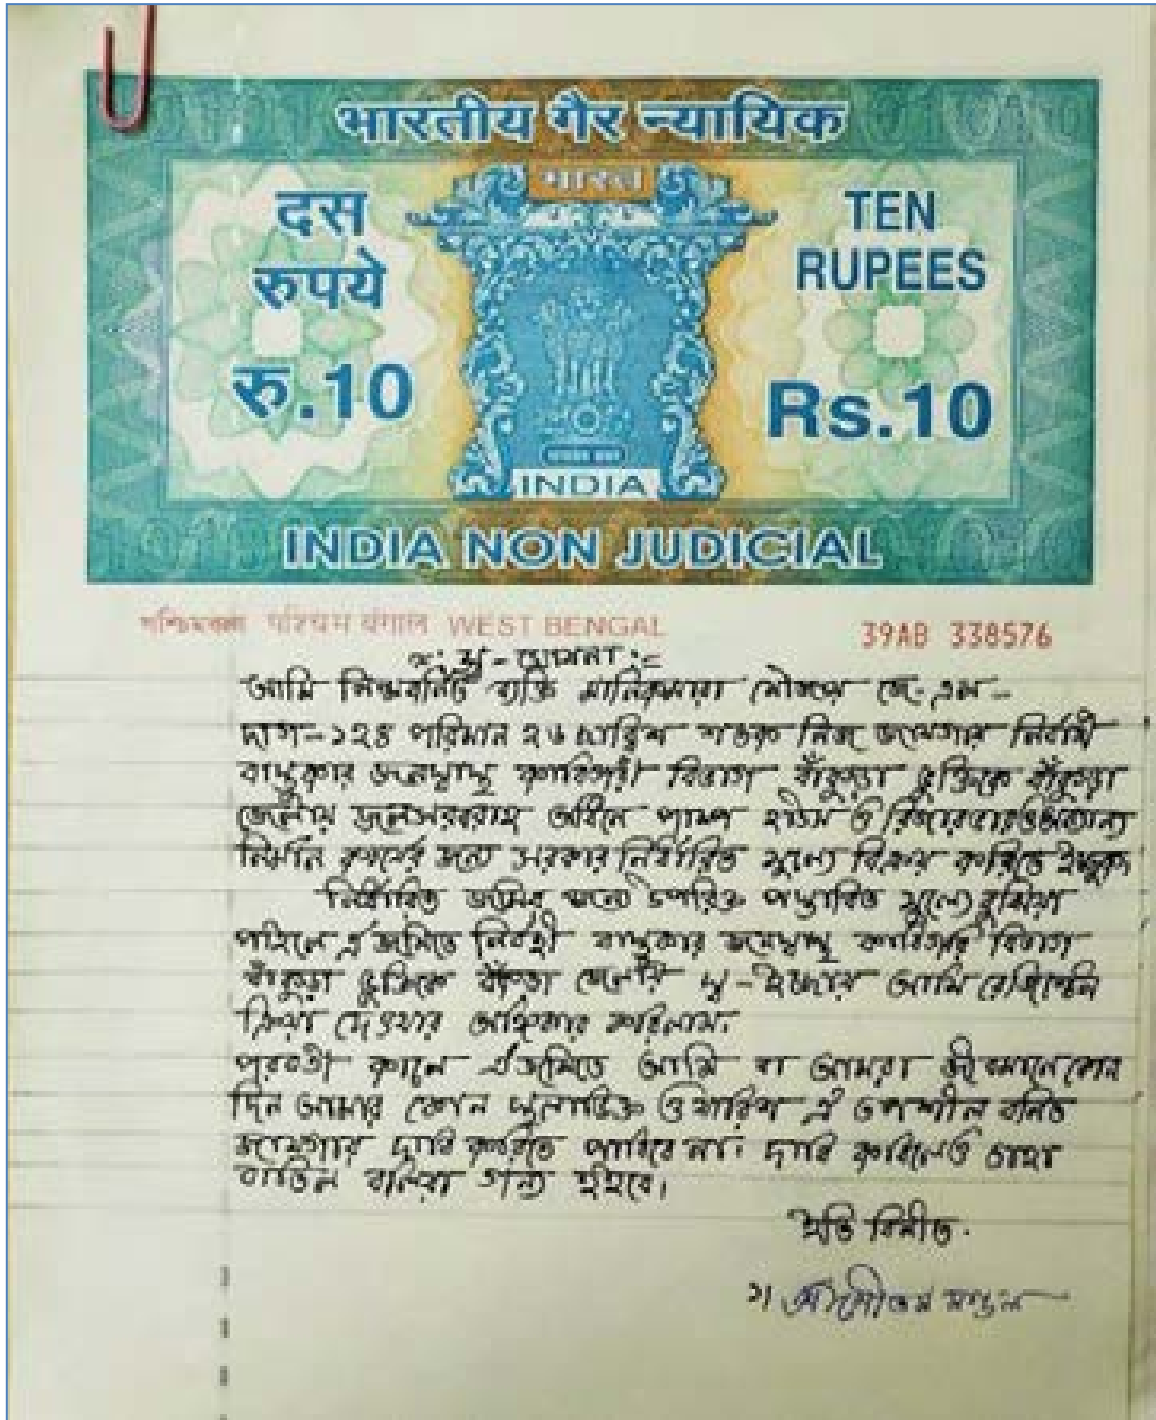 भारतीय गैर न्यायिक
भारत
दस
रुपये
रु.10
TEN
RUPEES
Rs.10
INDIA
INDIA NON JUDICIAL
পশ্চিমবঙ্গ पश्चिम बंगाल WEST BENGAL
39AB 338576
আমি নিম্নবর্নিত ব্যক্তি মৌজার জে-এল-
দাগ-১২৪ পরিমান ২৬ ছাব্বিশ শতক নিজ জায়গার নির্বাহী
বাস্তুকার জনস্বাস্থ্য কারিগরী বিভাগ বাঁকুড়া ভুক্তিকে বাঁকুড়া
জেলায় জলসরবরাহ পাম্প হাউস ও
নির্মান কার্যের জন্য সরকার নির্ধারিত মূল্যে বিক্রয় করিতে ইচ্ছুক
নির্ধারিত জমির জন্য মূল্য বুঝিয়া
পাইলে ঐ জমিতে নির্বাহী বাস্তুকার জনস্বাস্থ্য কারিগরি বিভাগ
বাঁকুড়া ভুক্তিকে বাঁকুড়া জেলার আমি
দেওয়ার অঙ্গিকার করিলাম।
পরবর্তী কালে ঐ জমিতে আমি বা আমরা কোন
দিন আমার কোন ও ওয়ারিশ ঐ তপশীল বর্নিত
জায়গার দাবি করিতে পারিবে না। দাবি করিলেও তাহা
বাতিল বলিয়া গন্য হইবে।
ইতি বিনীত.
১৷ মন্ডল